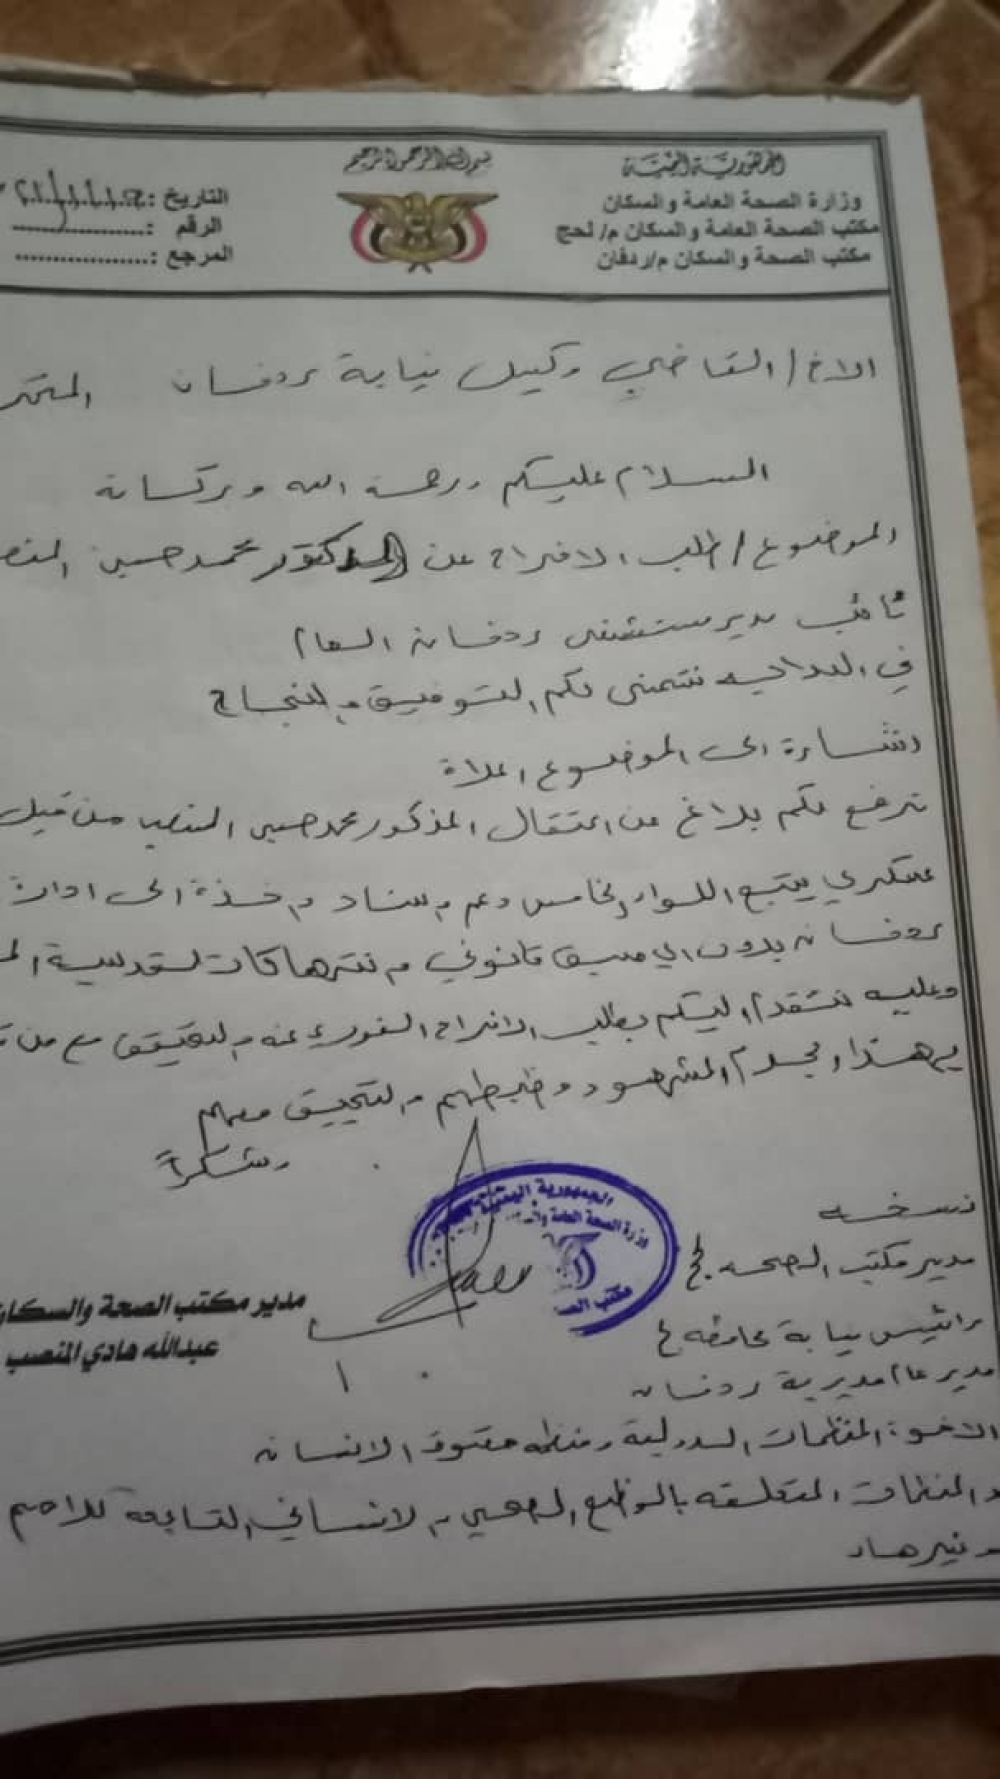 الجمهورية اليمنية
وزارة الصحة العامة والسكان
مكتب الصحة العامة والسكان م/ لحج
مكتب الصحة والسكان م/ردفان
بسم الله الرحمن الرحيم
التاريخ :
الرقم :
المرجع :
الاخ / القاضي وكيل نيابة ردفان المحتر
السلام عليكم ورحمة الله وبركاته
الموضوع / طلب الافراج عن الدكتور محمد حسين المنصب
نائب مدير مستشفى ردفان العام
في البداية نتمنى لكم التوفيق والنجاح
اشارة الى الموضوع اعلاة
نرفع لكم بلاغ عن اعتقال المذكور محمد حسين المنصب من قبل
عسكري يتبع اللواء الخامس دعم واسناد واخذة الى ادارة
ردفان بدون اي مسبق قانوني وانتهاكات لقدسية
وعليه نتقدم اليكم بطلب الافراج الفوري عنه والتحقيق مع من
بهذا المشهود وضبطهم والتحقيق معهم
وشكراً
الجمهورية اليمنية
وزارة الصحة العامة
مكتب الصحة
مدير مكتب الصحة والسكان
عبدالله هادي المنصب
نسخه
مدير مكتب الصحه لحج
رائيس نيابة محافظه لحج
مدير عام مديرية ردفان
الاخوة المنظمات الدولية ومنظمه حقوق الانسان
و المنظمات المتعلقه بالوظع الصحي والانساني التابعه للامم
وغيرها